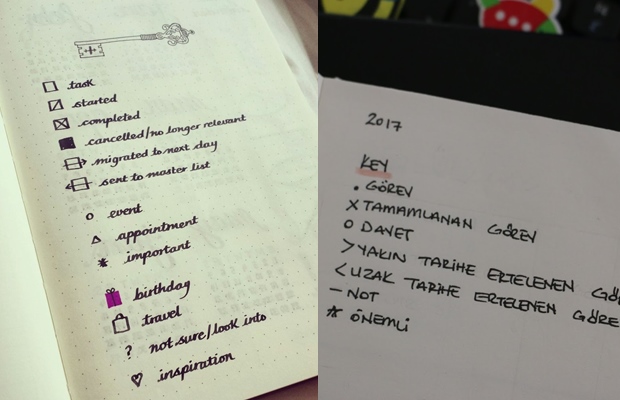 task
started
completed
cancelled/no longer relevant
migrated to next day
sent to master list
event
appointment
* important
birthday
travel
? not sure/look into
inspiration
2017
KEY
. GÖREV
X TAMAMLANAN GÖREV
O DAVET
> YAKIN TARİHE ERTELENEN
< UZAK TARİHE ERTELENEN GÖRE
- NOT
* ÖNEMLİ